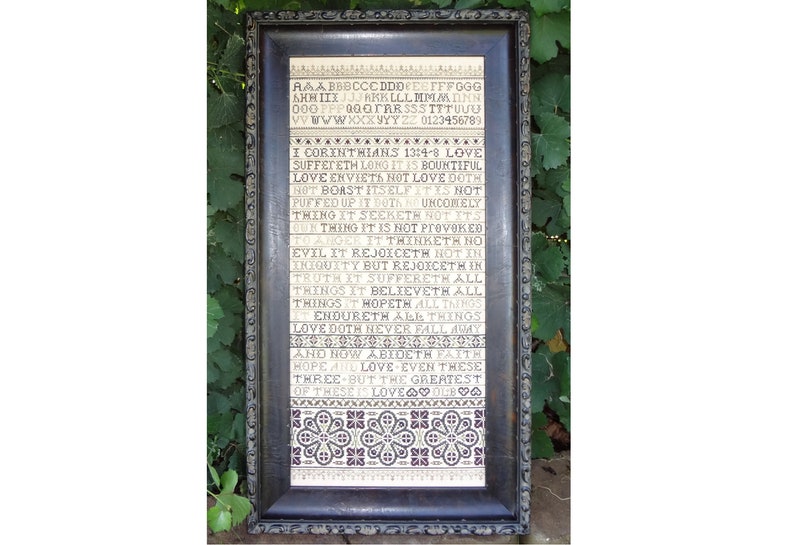 AAABBBCCCDDDEEEFFFGGG
HHHIIIJJJKKKLLLMMMNNN
OOOPPPQQQRRRSSSTTTUUU
VVWWWXXXYYYZZ0123456789
I CORINTHIANS 13:4-8 LOVE
SUFFERETH LONG IT IS BOUNTIFUL
LOVE ENVIETH NOT LOVE DOTH
NOT BOAST ITSELF IT IS NOT
PUFFED UP IT DOTH NO UNCOMELY
THING IT SEEKETH NOT ITS
OWN THING IT IS NOT PROVOKED
TO ANGER IT THINKETH NO
EVIL IT REJOICETH NOT IN
INIQUITY BUT REJOICETH IN
TRUTH IT SUFFERETH ALL
THINGS IT BELIEVETH ALL
THINGS IT HOPETH ALL THINGS
IT ENDURETH ALL THINGS
LOVE DOTH NEVER FALL AWAY
AND NOW ABIDETH FAITH
HOPE AND LOVE EVEN THESE
THREE BUT THE GREATEST
OF THESE IS LOVE